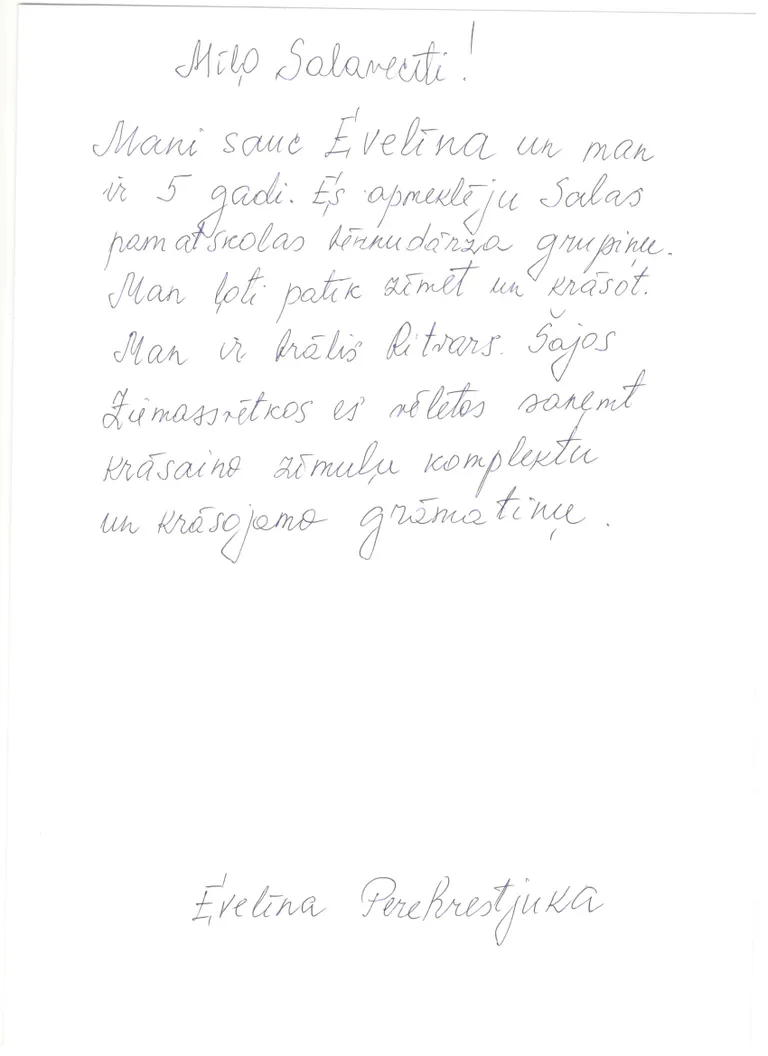 Mīļo Salavecīti!
Mani sauc Evelīna un man
ir 5 gadi. Es apmeklēju Salas
pamatskolas bērnudārza grupiņu.
Man ļoti patīk zīmēt un krāsot.
Man ir brālis Ritvars. Šajos
Ziemassvētkos es vēlētos saņemt
krāsaino zīmuļu komplektu
un krāsojamo grāmatiņu.
Evelīna Perehrestjuka